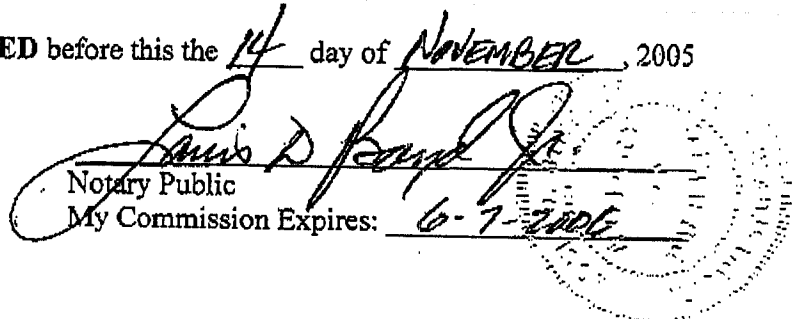 ED before this the 14 day of NOVEMBER, 2005
D Boyd Jr.
Notary Public
My Commission Expires: 6-7-2006